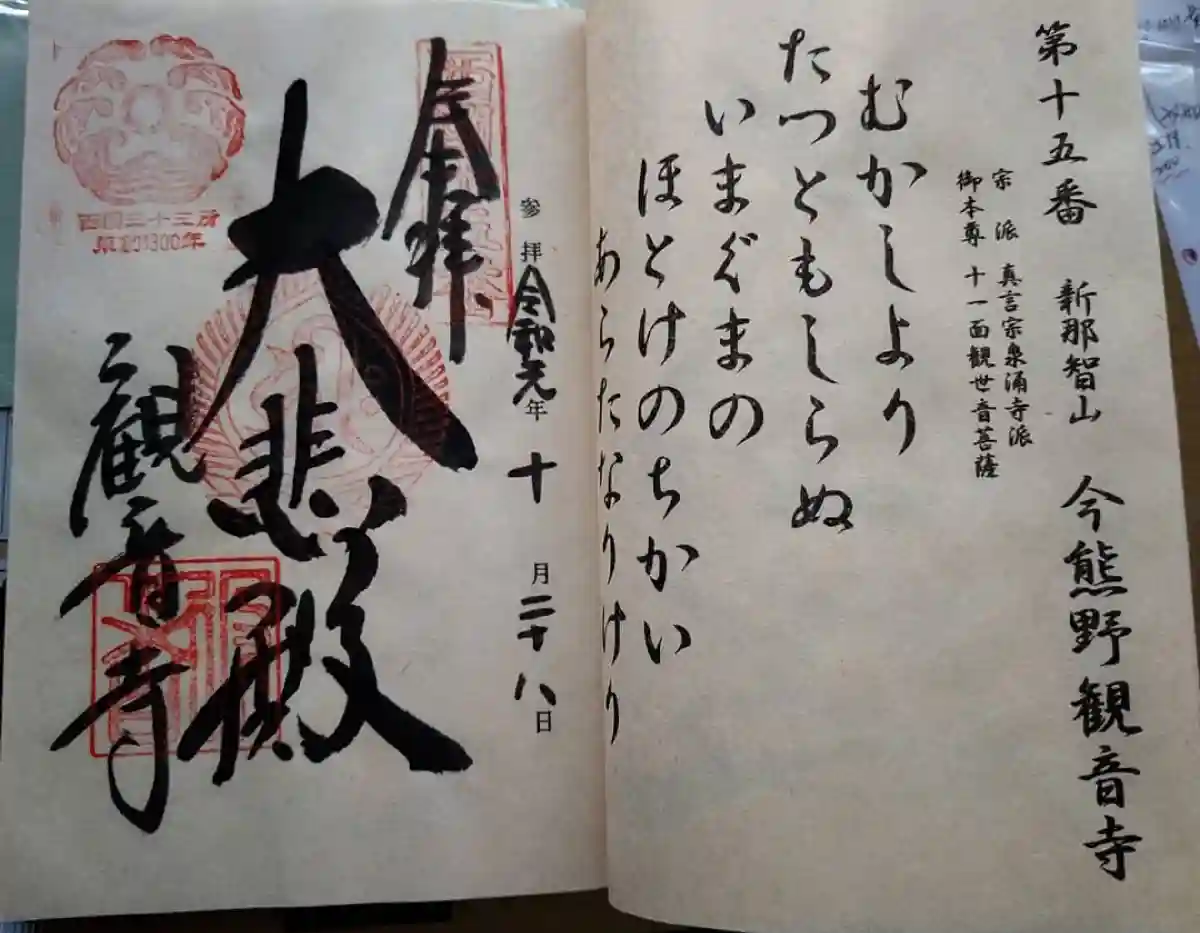 第十五番 新那智山 今熊野観音寺
宗派 真言宗泉涌寺派
御本尊 十一面観世音菩薩
むかしより
たつともしらぬ
いまぐまの
ほとけのちかい
あらたなりけり
参拝 令和元年 十月二十八日
奉拝
大悲殿
観音寺
西国三十三所
草創1300年